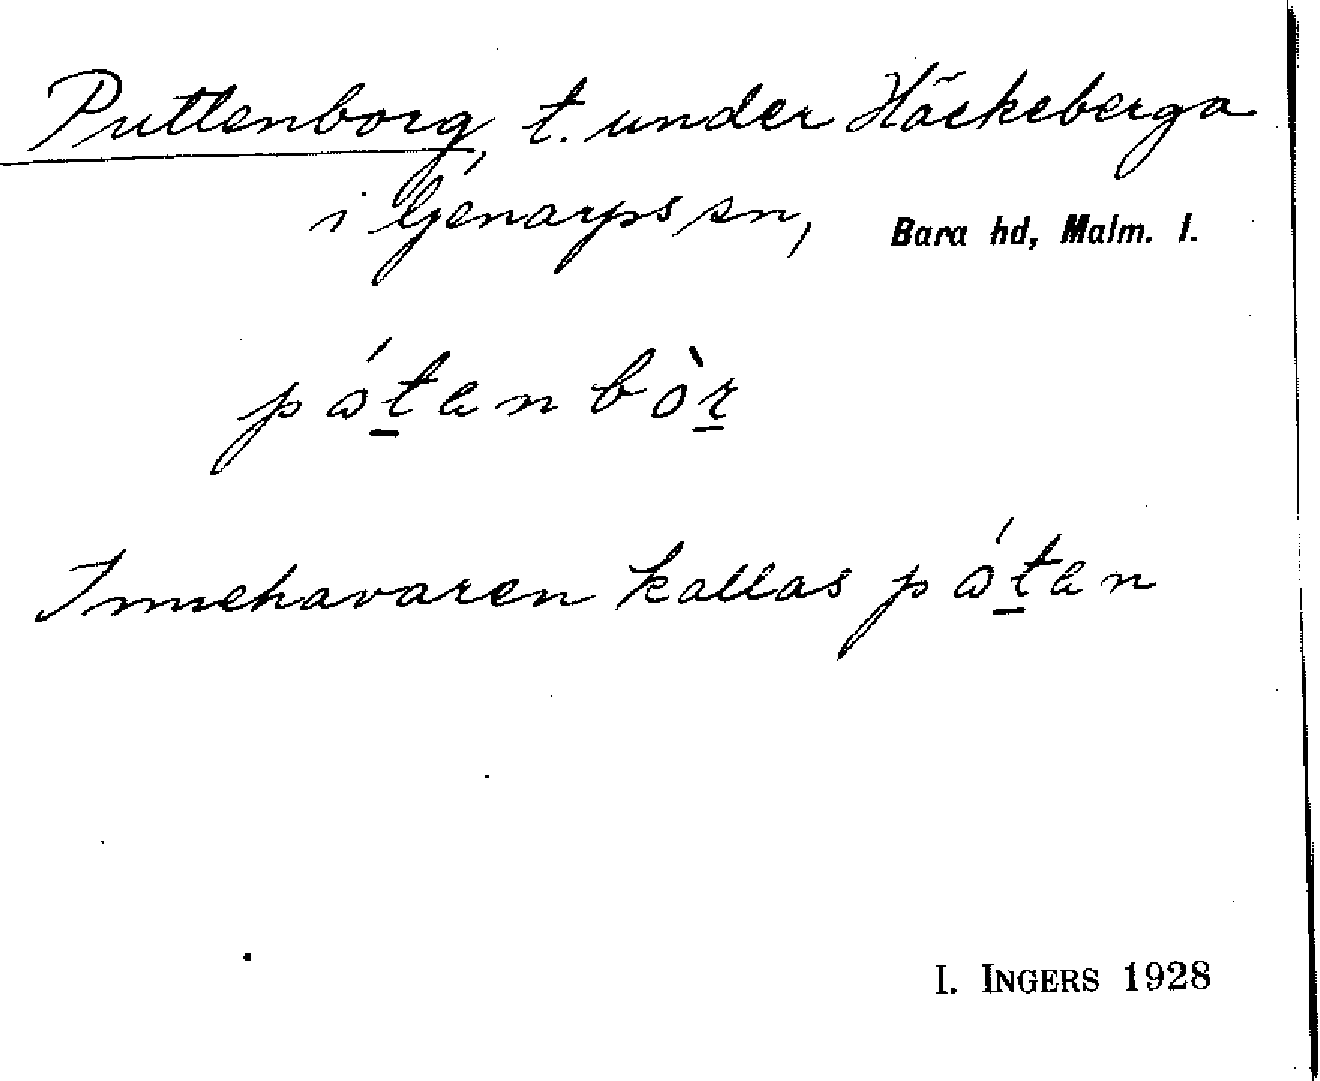 Puttenborg, t. under Häckeberga
i Genarps sn, Bara hd, Malm. l.
pó̱ṯanbòṟ
Innehavaren kallas póṯan
I. INGERS 1928